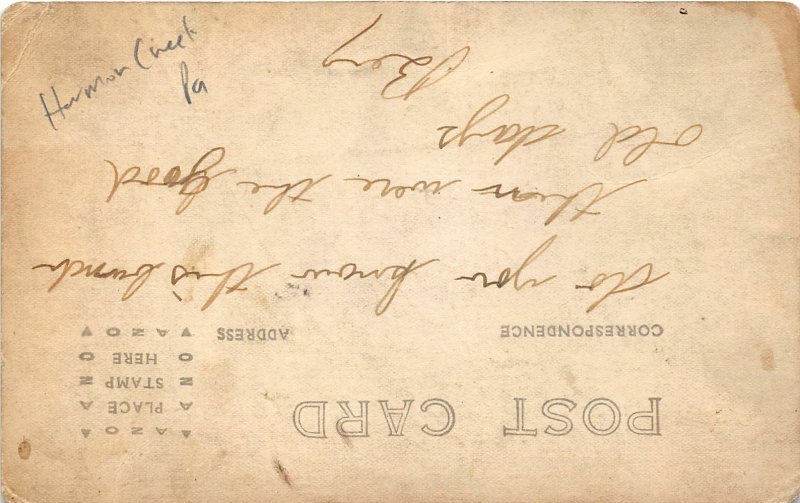 POST CARD
CORRESPONDENCE
ADDRESS
AZO
PLACE
STAMP
HERE
AZO
do you know this bunch
them were the good
old days
Harmon Creek
Pa